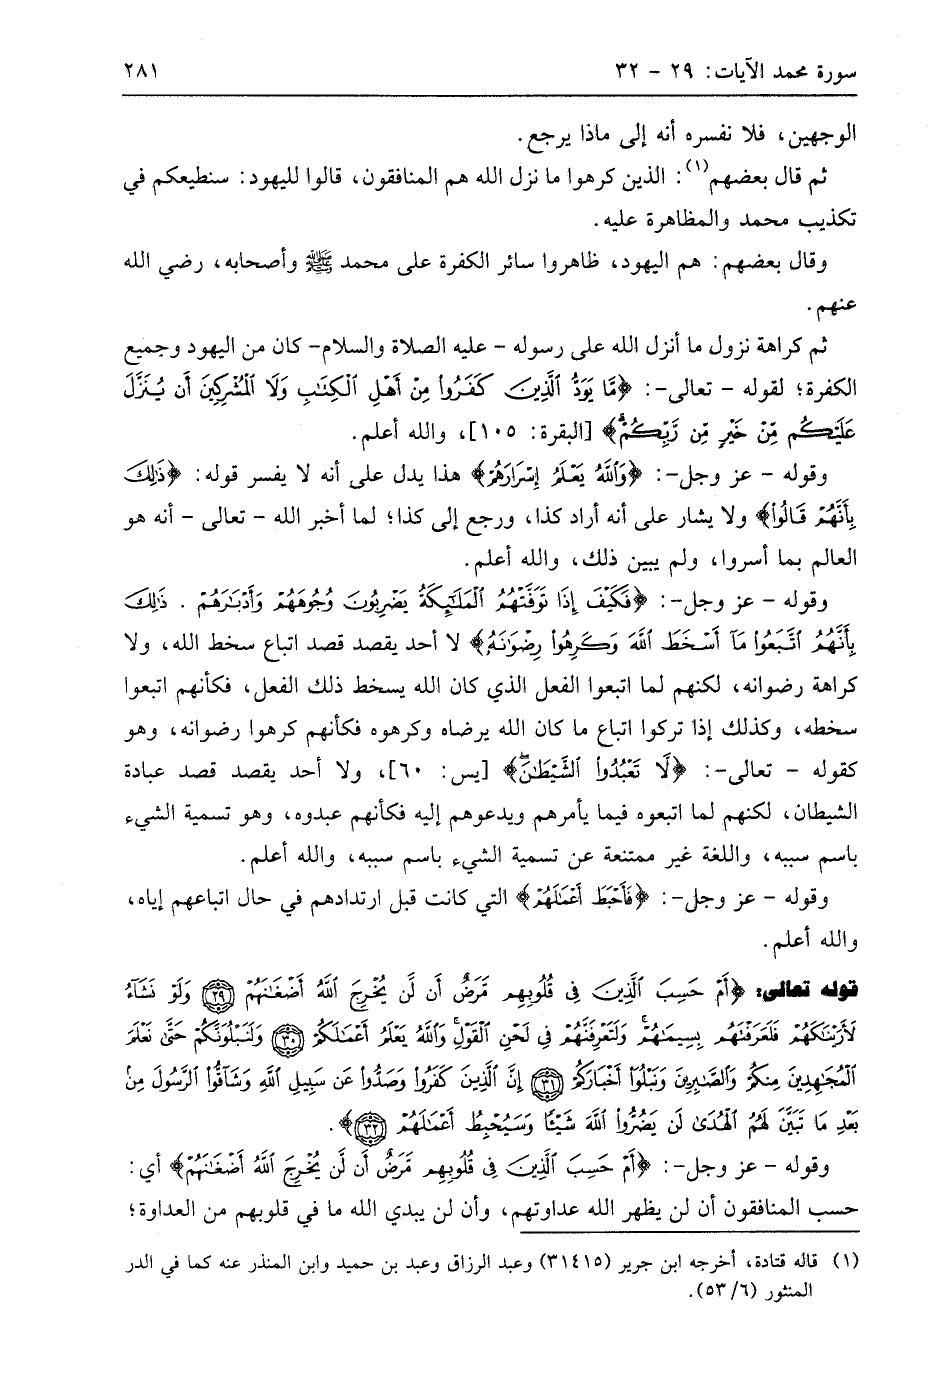 سورة محمد الآيات: ٢٩ - ٣٢ ٢٨١
الوجهين، فلا نفسره أنه إلى ماذا يرجع.
ثم قال بعضهم(١): الذين كرهوا ما نزل الله هم المنافقون، قالوا لليهود: سنطيعكم في
تكذيب محمد والمظاهرة عليه.
وقال بعضهم: هم اليهود، ظاهروا سائر الكفرة على محمد ﷺ وأصحابه، رضي الله
عنهم.
ثم كراهة نزول ما أنزل الله على رسوله - عليه الصلاة والسلام- كان من اليهود وجميع
الكفرة؛ لقوله - تعالى-: ﴿مَّا يَوَدُّ الَّذِينَ كَفَرُوا مِنْ أَهْلِ الْكِتَٰبِ وَلَا الْمُشْرِكِينَ أَن يُنَزَّلَ
عَلَيْكُم مِّنْ خَيْرٍ مِّن رَّبِّكُمْ﴾ [البقرة: ١٠٥]، والله أعلم.
وقوله - عز وجل-: ﴿وَاللَّهُ يَعْلَمُ إِسْرَارَهُمْ﴾ هذا يدل على أنه لا يفسر قوله: ﴿ذَٰلِكَ
بِأَنَّهُمْ قَالُوا﴾ ولا يشار على أنه أراد كذا، ورجع إلى كذا؛ لما أخبر الله - تعالى - أنه هو
العالم بما أسروا، ولم يبين ذلك، والله أعلم.
وقوله - عز وجل-: ﴿فَكَيْفَ إِذَا تَوَفَّتْهُمُ الْمَلَٰٓئِكَةُ يَضْرِبُونَ وُجُوهَهُمْ وَأَدْبَٰرَهُمْ . ذَٰلِكَ
بِأَنَّهُمُ اتَّبَعُوا مَآ أَسْخَطَ اللَّهَ وَكَرِهُوا رِضْوَٰنَهُ﴾ لا أحد يقصد قصد اتباع سخط الله، ولا
كراهة رضوانه، لكنهم لما اتبعوا الفعل الذي كان الله يسخط ذلك الفعل، فكأنهم اتبعوا
سخطه، وكذلك إذا تركوا اتباع ما كان الله يرضاه وكرهوه فكأنهم كرهوا رضوانه، وهو
كقوله - تعالى-: ﴿لَّا تَعْبُدُوا الشَّيْطَٰنَ﴾ [يس: ٦٠]، ولا أحد يقصد قصد عبادة
الشيطان، لكنهم لما اتبعوه فيما يأمرهم ويدعوهم إليه فكأنهم عبدوه، وهو تسمية الشيء
باسم سببه، واللغة غير ممتنعة عن تسمية الشيء باسم سببه، والله أعلم.
وقوله - عز وجل-: ﴿فَأَحْبَطَ أَعْمَٰلَهُمْ﴾ التي كانت قبل ارتدادهم في حال اتباعهم إياه،
والله أعلم.
قوله تعالى: ﴿أَمْ حَسِبَ الَّذِينَ فِي قُلُوبِهِم مَّرَضٌ أَن لَّن يُخْرِجَ اللَّهُ أَضْغَٰنَهُمْ ﴿٢٩﴾ وَلَوْ نَشَآءُ
لَأَرَيْنَٰكَهُمْ فَلَعَرَفْتَهُم بِسِيمَٰهُمْ وَلَتَعْرِفَنَّهُمْ فِي لَحْنِ الْقَوْلِ وَاللَّهُ يَعْلَمُ أَعْمَٰلَكُمْ ﴿٣٠﴾ وَلَنَبْلُوَنَّكُمْ حَتَّىٰ نَعْلَمَ
الْمُجَٰهِدِينَ مِنكُمْ وَالصَّٰبِرِينَ وَنَبْلُوَا أَخْبَارَكُمْ ﴿٣١﴾ إِنَّ الَّذِينَ كَفَرُوا وَصَدُّوا عَن سَبِيلِ اللَّهِ وَشَآقُّوا الرَّسُولَ مِنْ
بَعْدِ مَا تَبَيَّنَ لَهُمُ الْهُدَىٰ لَن يَضُرُّوا اللَّهَ شَيْـًٔا وَسَيُحْبِطُ أَعْمَٰلَهُمْ ﴿٣٢﴾﴾.
وقوله - عز وجل-: ﴿أَمْ حَسِبَ الَّذِينَ فِي قُلُوبِهِم مَّرَضٌ أَن لَّن يُخْرِجَ اللَّهُ أَضْغَٰنَهُمْ﴾ أي:
حسب المنافقون أن لن يظهر الله عداوتهم، وأن لن يبدي الله ما في قلوبهم من العداوة؛
(١) قاله قتادة، أخرجه ابن جرير (٣١٤١٥) وعبد الرزاق وعبد بن حميد وابن المنذر عنه كما في الدر
المنثور (٥٣/٦).